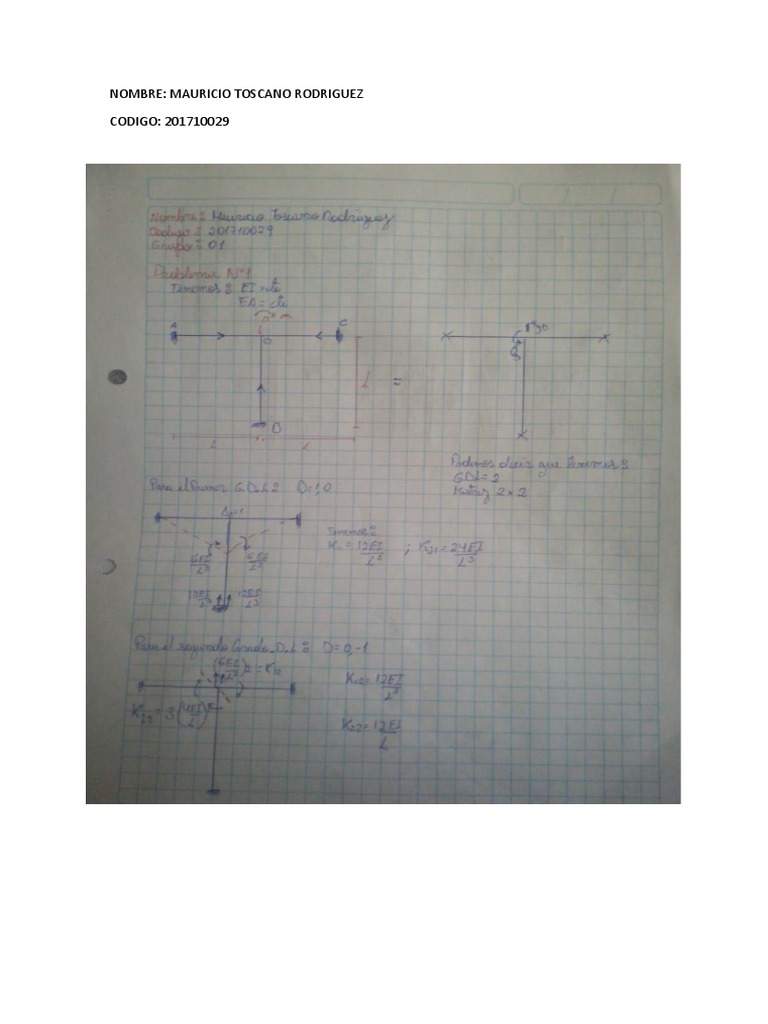 NOMBRE: MAURICIO TOSCANO RODRIGUEZ
CODIGO: 201710029
Nombre: Mauricio Toscano Rodriguez
Codigo: 201710029
Grupo: 01
Problema Nº1
Tenemos: EI = cte
EA = cte
A
C
B
L
≈
L L
Podemos decir que tenemos:
GDL = 2
Matriz 2x2
Para el Primer G.D.L: D=1,0
Tenemos:
6EI/L² 6EI/L²
12EI/L³ 12EI/L³
= 12EI/L² ; = 24EI/L³
Para el segundo Grado D.L: D=0,-1
(6EI/L²) = K12
K12 = 12EI/L²
K22 = 3(4EI/L)
K22 = 12EI/L